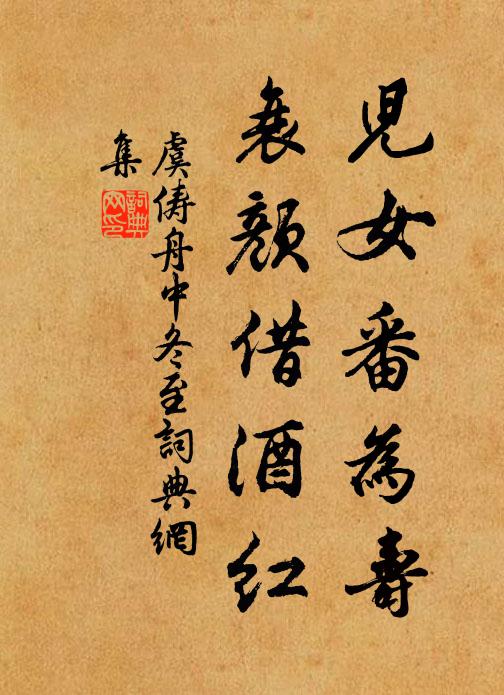 兒女番為壽
衰顏借酒紅
虞儔舟中冬至詞典網
集
詞典
网印